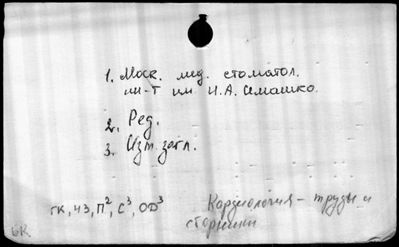 1. Моск. мед. стоматол.
ин-т им Н.А. Семашко.
2. Ред.
3. Изм. загл.
ГК, ЧЗ, П², С³, ОФ³
Кардиология – труды и
сборники
бК